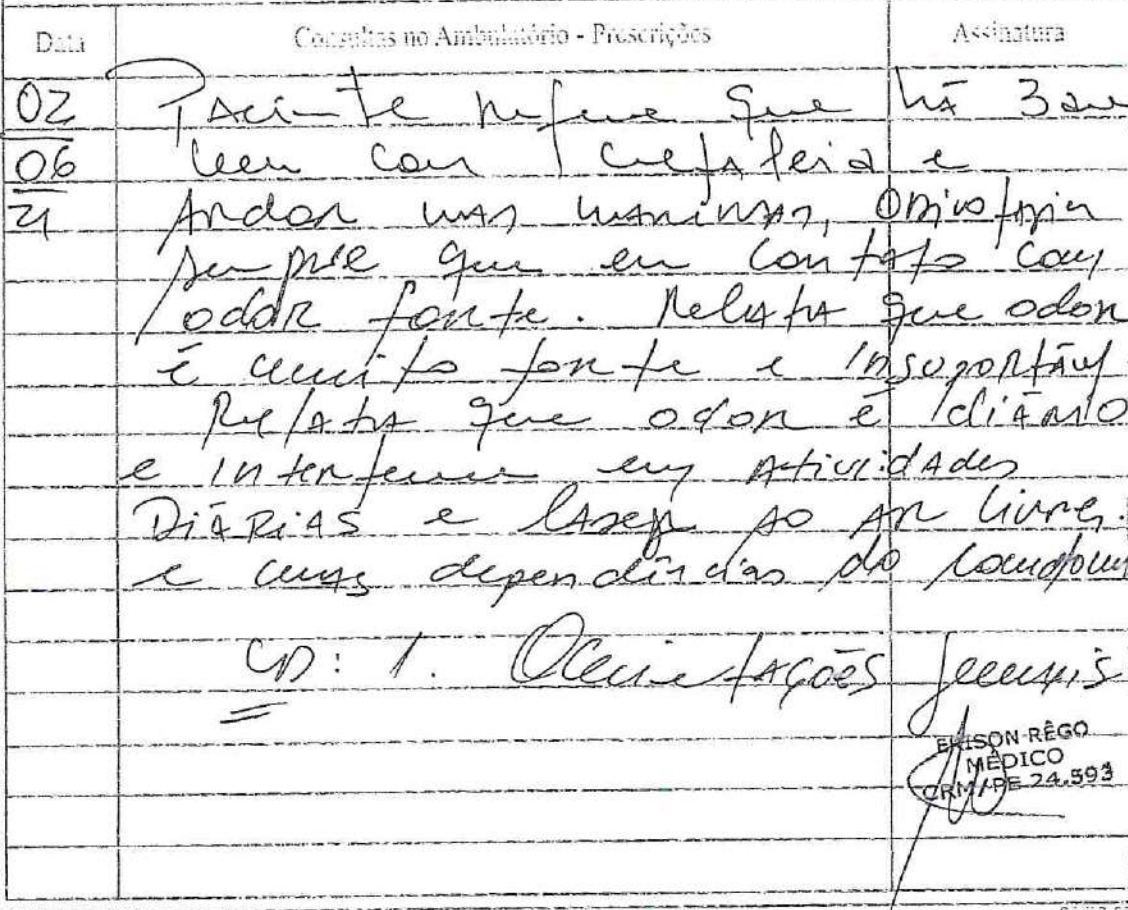 Data Consultas no Ambulatório - Prescrições Assinatura
02 Paciente refere que há 3 anos
06 vem com cefaleia e
21 Ardor nas narinas,
sempre que em contato com
odor forte. Relata que odor
é muito forte e insuportável
Relata que odor é diário
e interfere em atividades
Diárias e lazer ao ar livre.
e nas dependências do condomí
CD: 1. Orientações gerais
ERISON RÊGO
MÉDICO
CRM/PE 24.593